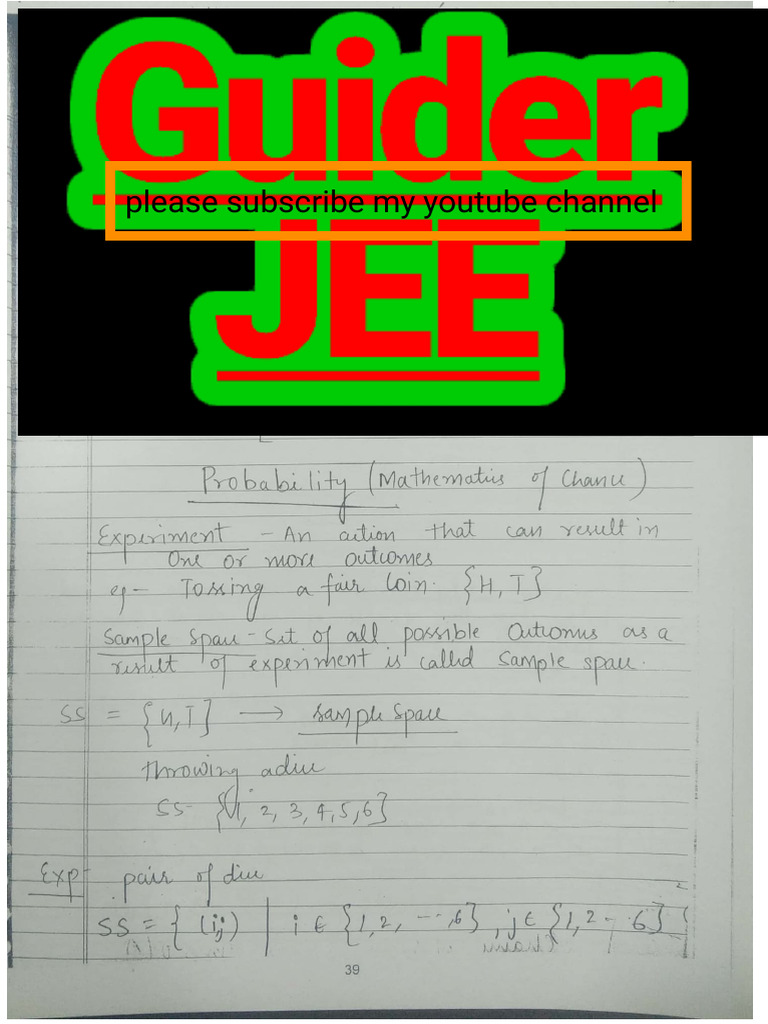 Guider
please subscribe my youtube channel
JEE
Probability (Mathematics of Chance)
Experiment - An action that can result in
One or more outcomes
eg- Tossing a fair Coin. {H, T}
Sample Space - Set of all possible Outcomes as a
result of experiment is called Sample space.
SS = {H, T} → Sample Space
Throwing a dice
SS- {1, 2, 3, 4, 5, 6}
Exp- pair of dice
SS = { (i,j) | i ∈ {1, 2, ---, 6}, j ∈ {1, 2 - - 6} }
39